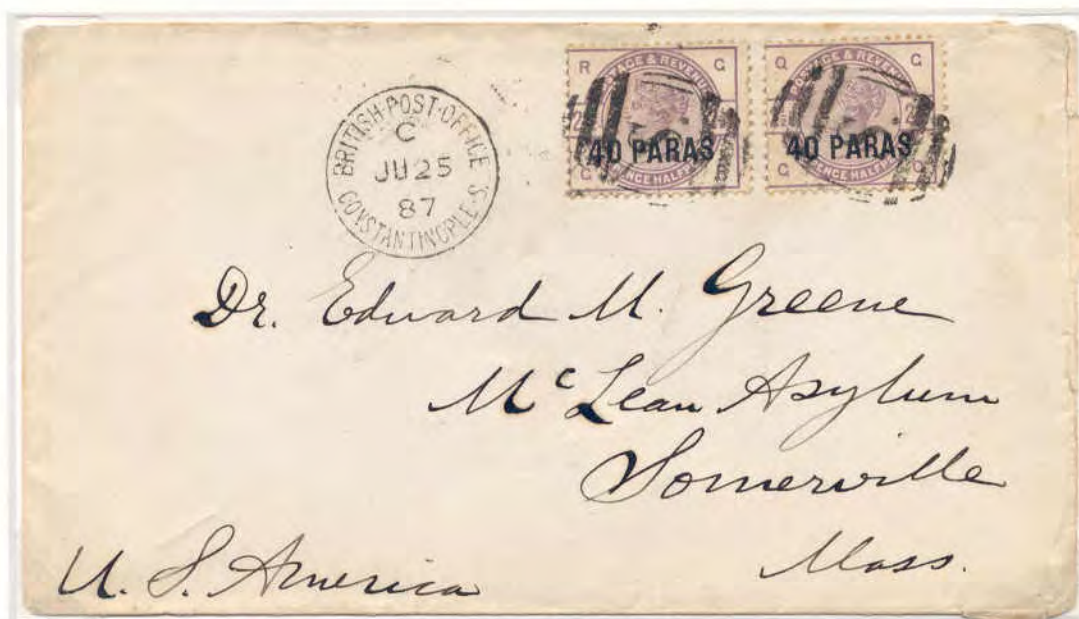 BRITISH·POST·OFFICE
C
JU 25
87
CONSTANTINOPLE·S.
R G
POSTAGE & REVENUE
40 PARAS
G
Q G
POSTAGE & REVENUE
40 PARAS
G Q
Dr. Edward M. Greene
Mc Lean Asylum
Somerville
Mass.
U. S. America